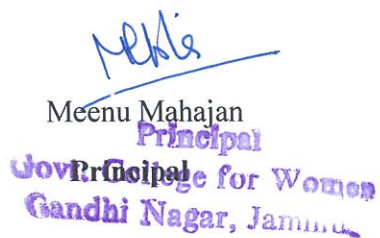 Meenu Mahajan
Principal
Principal
Govt. College for Women
Gandhi Nagar, Jammu